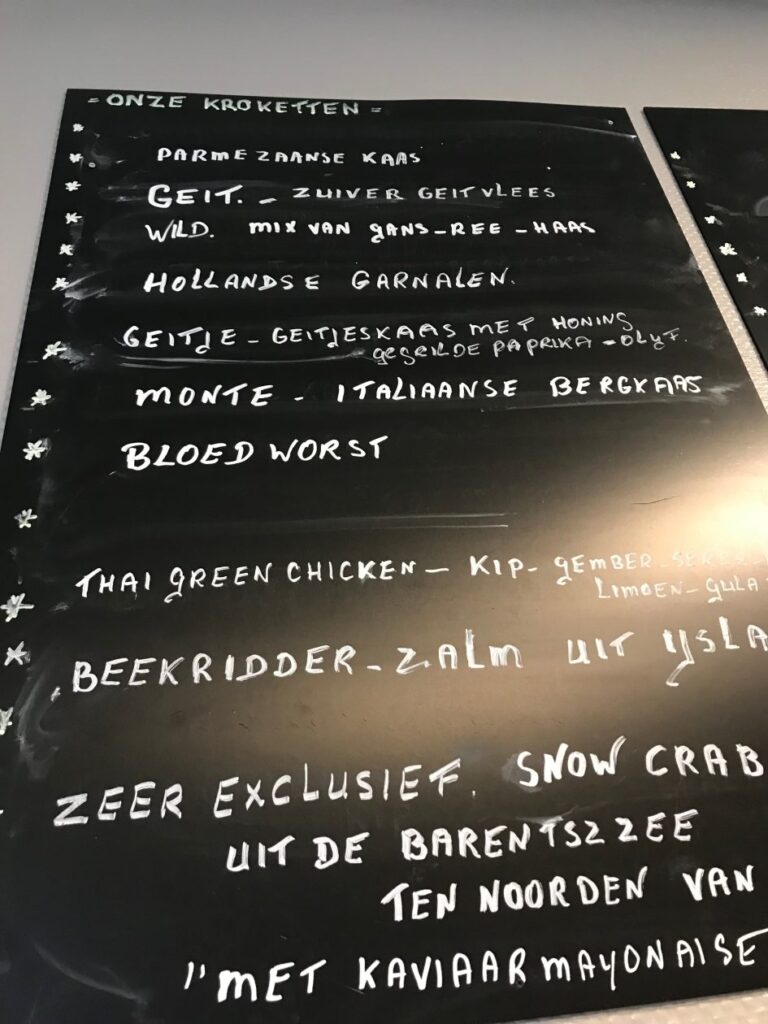 = ONZE KROKETTEN =
PARMEZAANSE KAAS
GEIT. - ZUIVER GEITVLEES
WILD. MIX VAN GANS-REE-HAAS
HOLLANDSE GARNALEN.
GEITJE - GEITJESKAAS MET HONING
GEGRILDE PAPRIKA - OLIJF.
MONTE - ITALIAANSE BERGKAAS
BLOEDWORST
THAI GREEN CHICKEN - KIP - GEMBER -
LIMOEN - GULA
BEEKRIDDER - ZALM UIT IJSLA
ZEER EXCLUSIEF. SNOW CRAB
UIT DE BARENTSZZEE
TEN NOORDEN VAN
"MET KAVIAARMAYONAISE